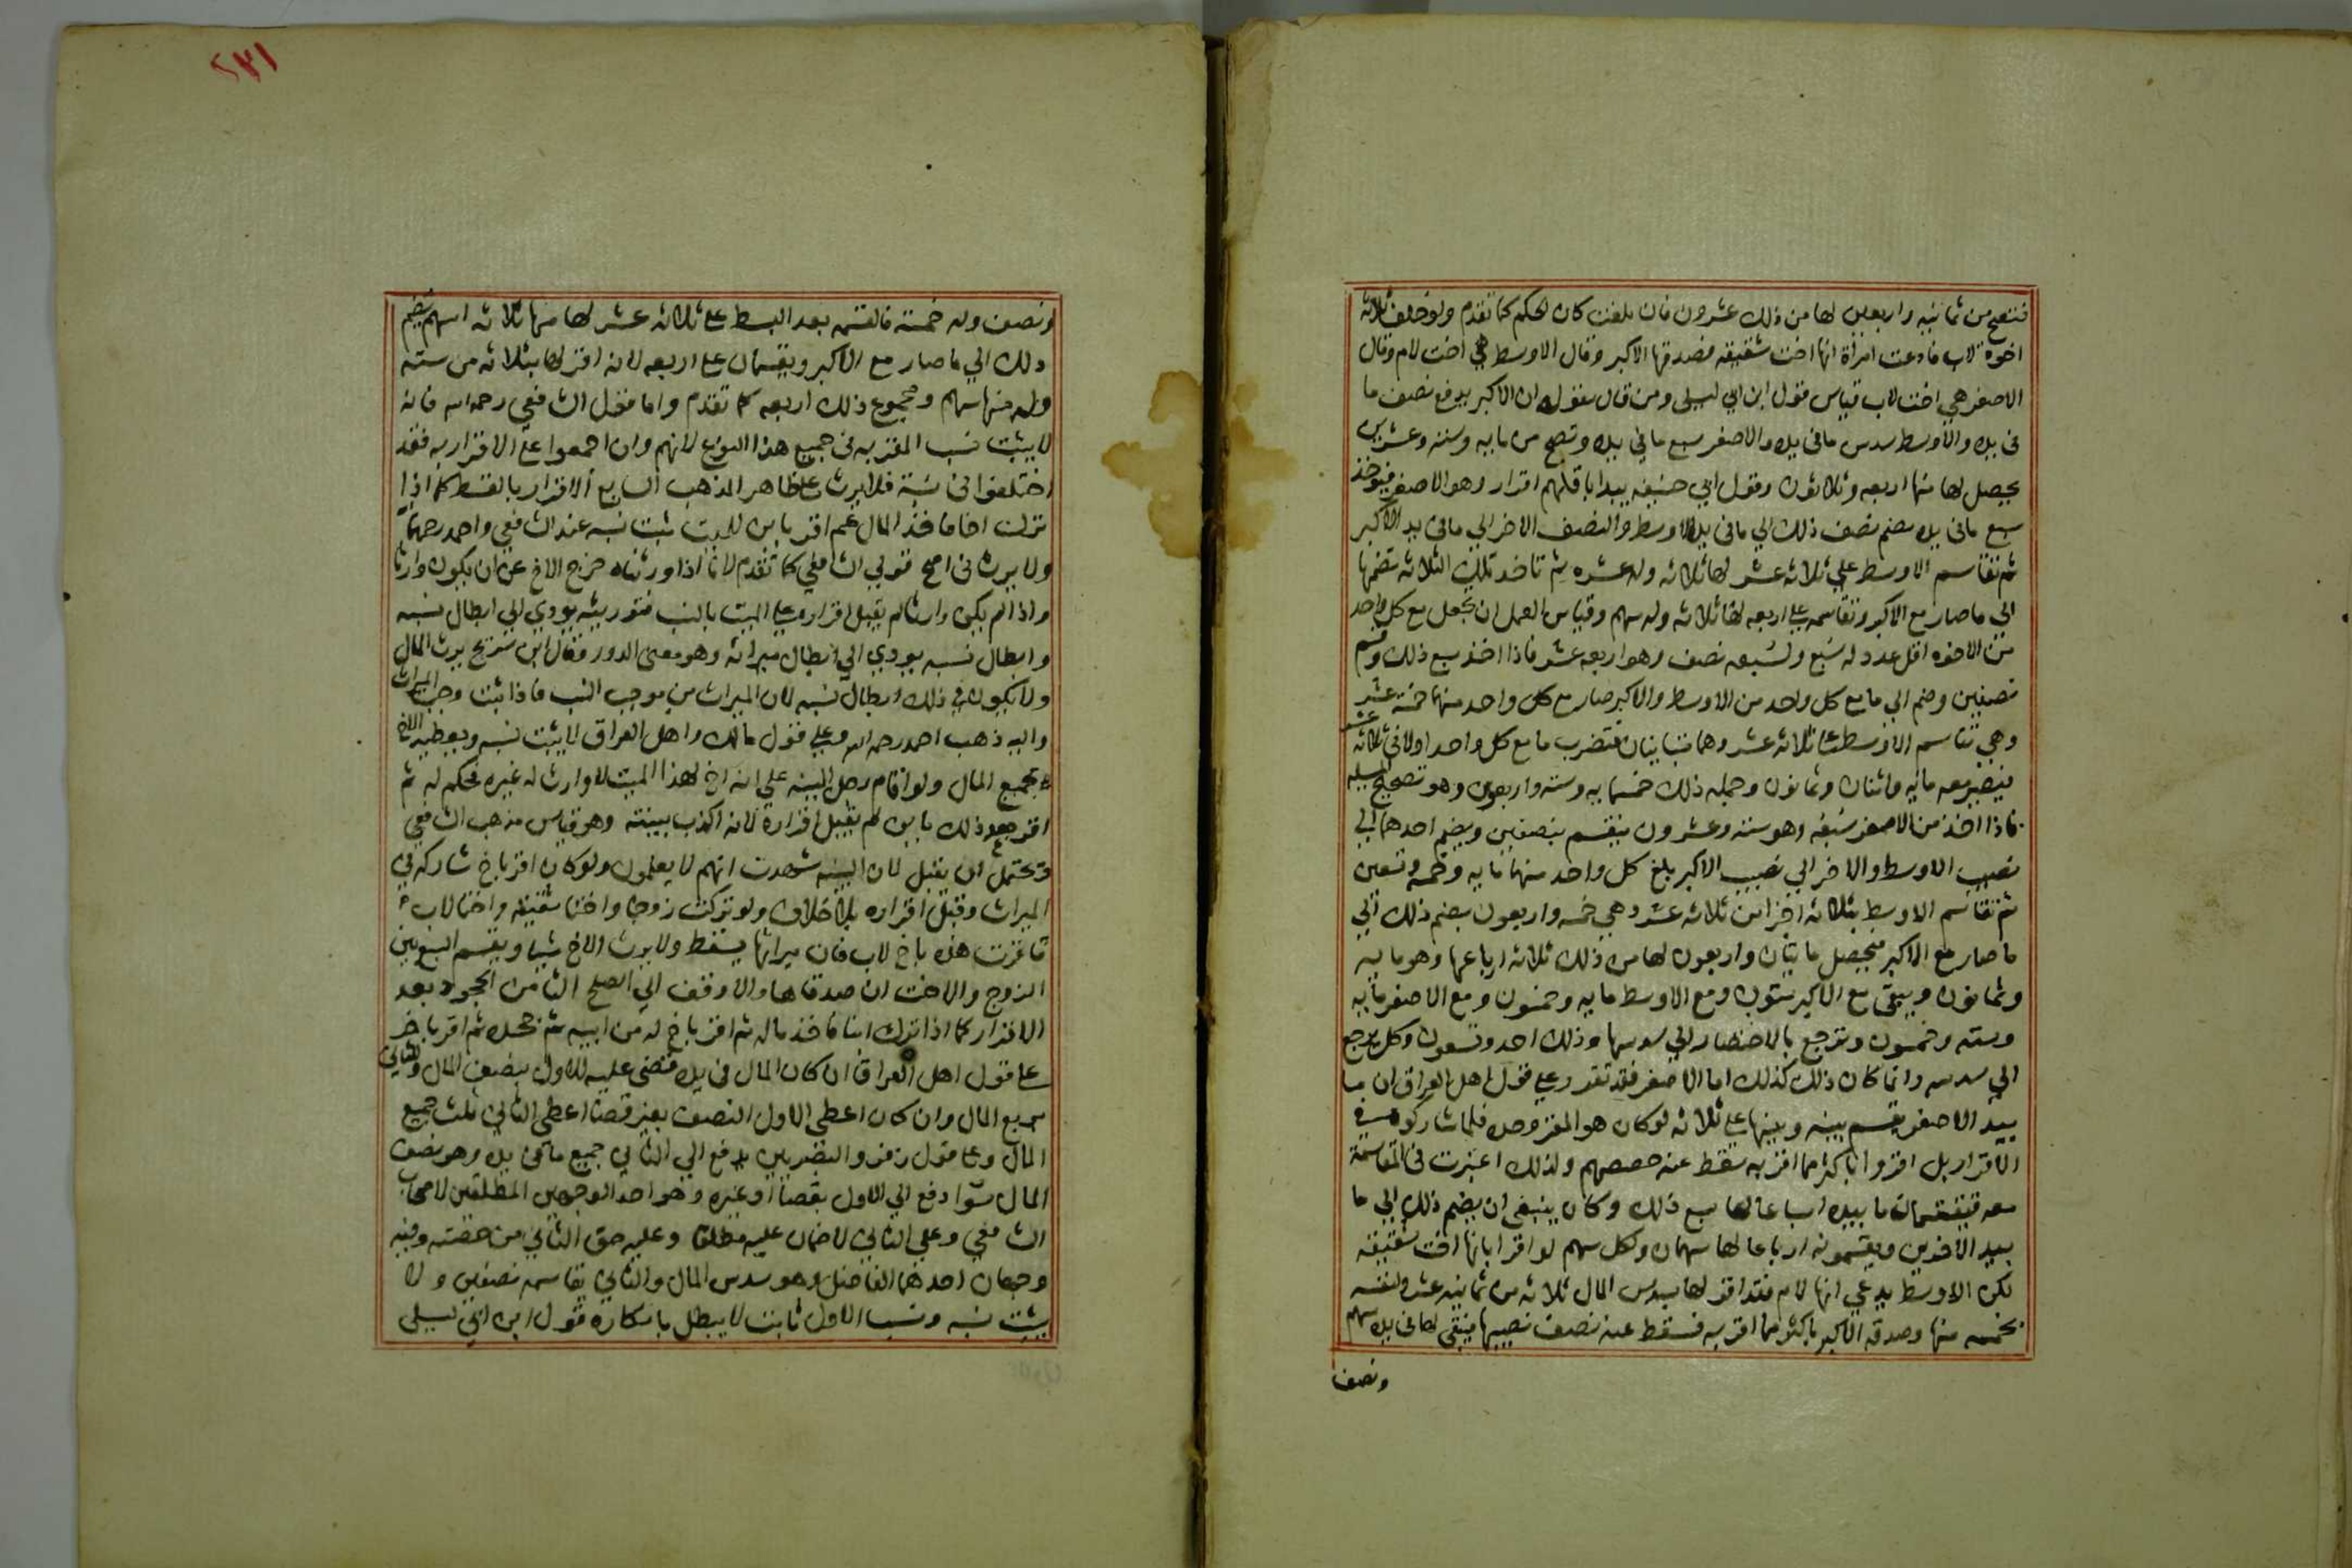 فتصح من ثمانية واربعين لها من ذلك عشرون فان بلغت كان الحكم كما تقدم ولو خلف ثلاثة
اخوة لاب فادعت امراة انها اخت شقيقة فصدقها الاكبر وقال الاوسط هي اخت لام وقال
الاصغر هي اخت لاب قياس قول ابن ابي ليلى ومن قال بقوله ان الاكبر يدفع نصف ما
فى يده والاوسط سدس ما فى يده والاصغر سبع ما في يده وتصح من مايه وسته وعشرين
يحصل لها منها اربعه وثلاثون وقول ابي حنيفه يبدا باقلهم اقرار وهو الاصغر فيوخذ
سبع ما فى يده يضم نصف ذلك الي ما فى يد الاوسط والنصف الاخر الي ما فى يد الاكبر
ثم تقاسم الاوسط علي ثلاثه عشر لها ثلاثه وله عشره ثم تاخذ تلك الثلاثه تضمها
الي ما صار مع الاكبر وتقاسمه علي اربعه لها ثلاثه وله سهم وقياس العمل ان تجعل مع كل واحد
من الاخوه اقل عدد له سبع ولسبعه نصف وهو اربعه عشر فاذا اخذ سبع ذلك وقسم
نصفين وضم الي ما مع كل واحد من الاوسط والاكبر صار مع كل واحد منهما خمسة عشر
وهي تقاسم الاوسط علي ثلاثه عشر وهما متباينان فتضرب ما مع كل واحد اولا في ثلاثه عشر
فيصير معه مايه واثنان وثمانون وجمله ذلك خمسمايه وسته واربعون وهو تصحيح المسله
فاذا اخذ من الاصغر سبعه وهو سته وعشرون ينقسم بنصفين ويضم احدهما الي
نصيب الاوسط والاخر الي نصيب الاكبر بلغ كل واحد منهما مايه وخمسه وتسعين
ثم تقاسم الاوسط بثلاثه اجزا من ثلاثه عشر وهي خمسه واربعون يضم ذلك الي
ما صار مع الاكبر فيحصل مايتان واربعون لها من ذلك ثلاثه ارباعها وهو مايه
وثمانون ويبقى مع الاكبر ستون ومع الاوسط مايه وخمسون ومع الاصغر مايه
وسته وخمسون وترجع بالاختصار الي سدسها وذلك احد وتسعون وكل يرجع
الي سدسه وانما كان ذلك كذلك اما الاصغر فقد تقدر علي قول اهل العراق ان ما
بيد الاصغر يقسم بينه وبينها علي ثلاثه لو كان هو المقر وحده فلما شاركوه في
الاقرار بل اقروا باكثر مما اقر به سقط عنه حصصهم ولذلك اعتبرت فى المقاسمة
معه فيقتسمان ما بيده اسباعا لها سبع ذلك وكان ينبغي ان يضم ذلك الي ما
بيد الاخوين ويقسمونه ارباعا لها سهمان ولكل سهم لو اقرا بانها اخت شقيقه
لكن الاوسط يدعي انها لام فقد اقر لها بسدس المال ثلاثه من ثمانيه عشر ولنفسه
بخمسه منها وصدقه الاكبر باكثر مما اقر به فسقط عنه نصف نصيبها فيبقى لها فى يده سهم
ونصف
٢٣١
ونصف وله خمسة فالقسمه بعد البسط علي ثلاثه عشر لها منها ثلاثه اسهم يضم
ذلك الي ما صار مع الاكبر ويقسمان علي اربعه لانه اقر لها بثلاثه من سته
وله منها سهم ومجموع ذلك اربعه كما تقدم واما قول الشافعي رحمه الله فانه
لا يثبت نسب المقر به فى جميع هذا النوع لانهم وان اجمعوا علي الاقرار به فقد
اختلفوا فى نسبة فلا يرث علي ظاهر المذهب السابع الاقرار بالقسط كما اذا
تركت اخا فاخذ المال ثم اقر بابن للميت ثبت نسبه عند الشافعي واحمد رحمهما
ولا يرث فى اصح قولي الشافعي كما تقدم لانا اذا ورثناه خرج الاخ عن ان يكون وارثا
واذا لم يكن وارثا لم يقبل اقراره علي الميت بالنسب فتوريثه يودي الي ابطال نسبه
وابطال نسبه يودي الي ابطال ميراثه وهو معنى الدور فقال ابن سريج يرث المال
ولا يكون في ذلك ابطال نسبه لان الميراث من موجب النسب فاذا ثبت وجب الميراث
واليه ذهب احمد رحمه الله وعلي قول مالك واهل العراق لا يثبت نسبه ويعطيه الاخ
جميع المال ولو اقام رجل البينه علي انه اخ لهذا الميت لا وارث له غيره فحكم له ثم
اقر بعد ذلك بابن لم يقبل اقراره لانه اكذب ببينته وهو قياس مذهب الشافعي
ويحتمل ان يقبل لان البينه شهدت انهم لا يعلمون ولو كان اقر باخ شاركه في
الميراث وقبل اقراره بلا خلاف ولو تركت زوجا واختا شقيقه واختا لاب
فاقرت هذه باخ لاب فان ميراثها يسقط ولا يرث الاخ شيا ويقسم السبع بين
الزوج والاخت ان صدقاها والا وقف الي الصلح الثامن الجحود بعد
الاقرار كما اذا ترك ابنا فاخذ ماله ثم اقر باخ له من ابيه ثم جحده ثم اقر باخر
علي قول اهل العراق ان كان المال فى يده فقضى عليه للاول بنصف المال وللثاني
بربع المال وان كان اعطى الاول النصف بغير قضا اعطى الثاني ثلث جميع
المال وعلي قول زفر والبصريين يدفع الي الثاني جميع ما بقى بيده وهو نصف
المال سوا دفع الي الاول بقضا او غيره وهو احد الوجهين المطلقين لاصحاب
الشافعي وعلي الثاني لا ضمان عليه مطلقا وعليه حق الثاني من حصته وفيه
وجهان احدهما الفاضل وهو سدس المال والثاني يقاسمه نصفين ولا
يثبت نسبه ونسب الاول ثابت لا يبطل بانكاره قول ابن ابي ليلى